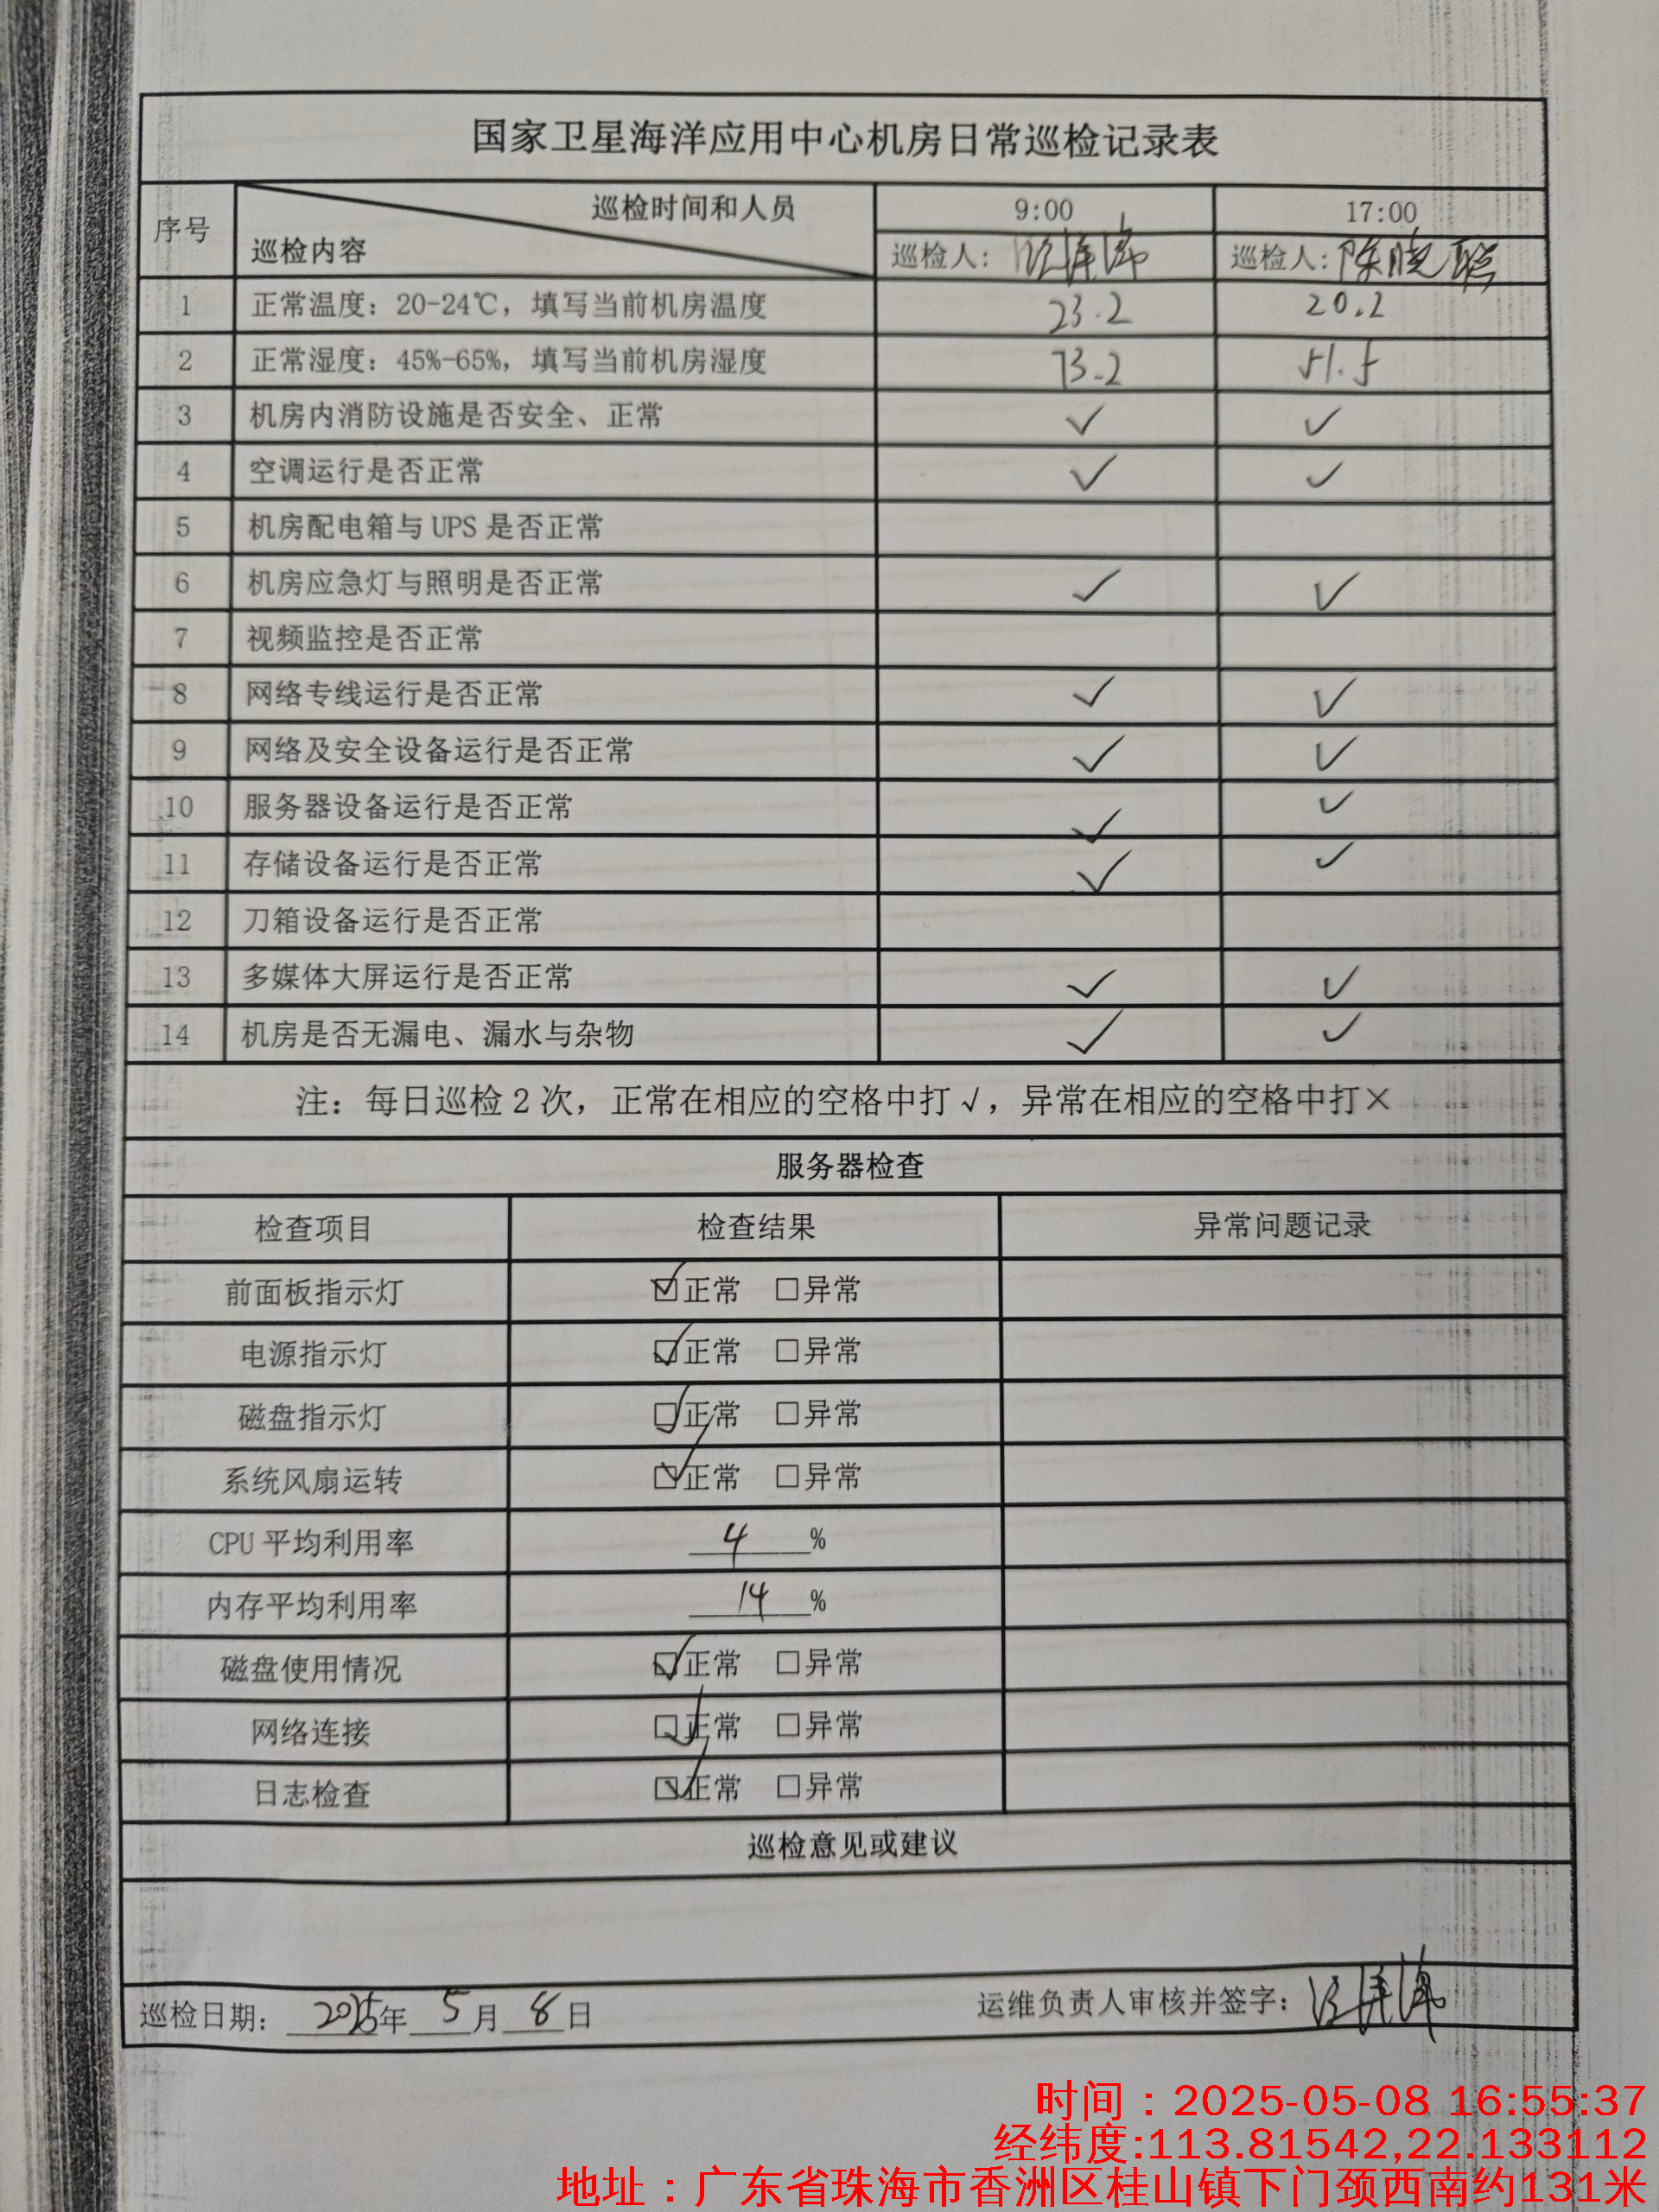 国家卫星海洋应用中心机房日常巡检记录表
序号 巡检时间和人员 巡检内容 9:00 17:00
巡检人： 巡检人：陈晓聪
1 正常温度：20-24℃，填写当前机房温度 23.2 20.2
2 正常湿度：45%-65%，填写当前机房湿度 73.2 51.5
3 机房内消防设施是否安全、正常 ✓ ✓
4 空调运行是否正常 ✓ ✓
5 机房配电箱与 UPS 是否正常
6 机房应急灯与照明是否正常 ✓ ✓
7 视频监控是否正常
8 网络专线运行是否正常 ✓ ✓
9 网络及安全设备运行是否正常 ✓ ✓
10 服务器设备运行是否正常 ✓ ✓
11 存储设备运行是否正常 ✓ ✓
12 刀箱设备运行是否正常
13 多媒体大屏运行是否正常 ✓ ✓
14 机房是否无漏电、漏水与杂物 ✓ ✓
注：每日巡检 2 次，正常在相应的空格中打√，异常在相应的空格中打×
服务器检查
检查项目 检查结果 异常问题记录
前面板指示灯 ☑正常 □异常
电源指示灯 ☑正常 □异常
磁盘指示灯 ☑正常 □异常
系统风扇运转 ☑正常 □异常
CPU 平均利用率 4 %
内存平均利用率 14 %
磁盘使用情况 ☑正常 □异常
网络连接 ☑正常 □异常
日志检查 ☑正常 □异常
巡检意见或建议
巡检日期： 2025年 5 月 8 日 运维负责人审核并签字：
时间：2025-05-08 16:55:37
经纬度:113.81542,22.133112
地址：广东省珠海市香洲区桂山镇下门颈西南约131米